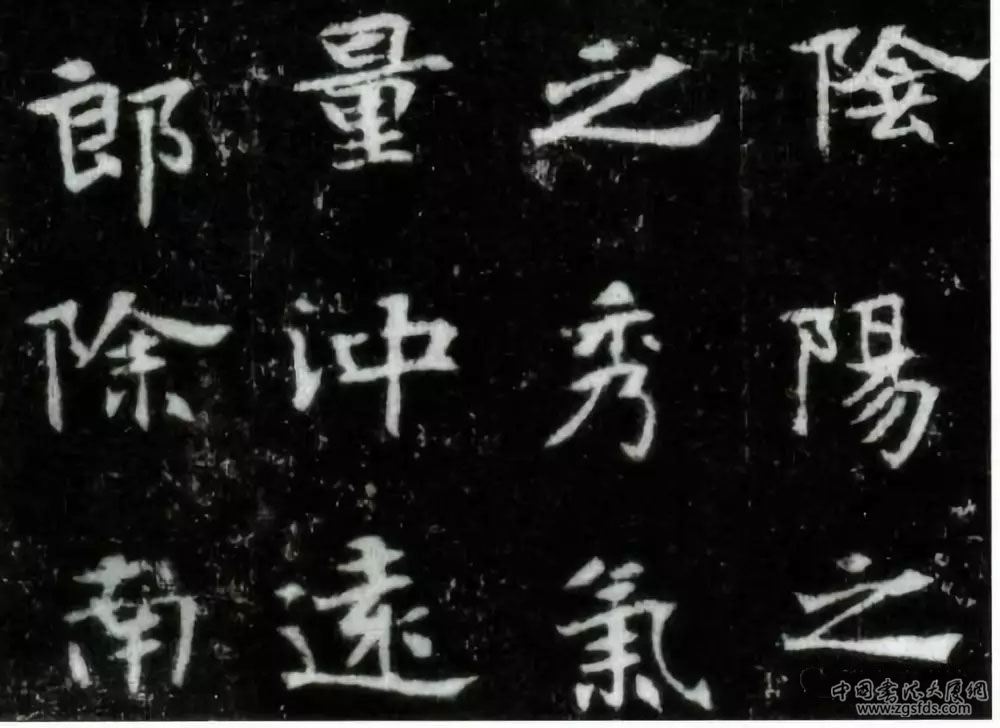 陰陽之
之秀氣
量沖遠
郎除南
中国书法大厦网
www.zgsfds.com